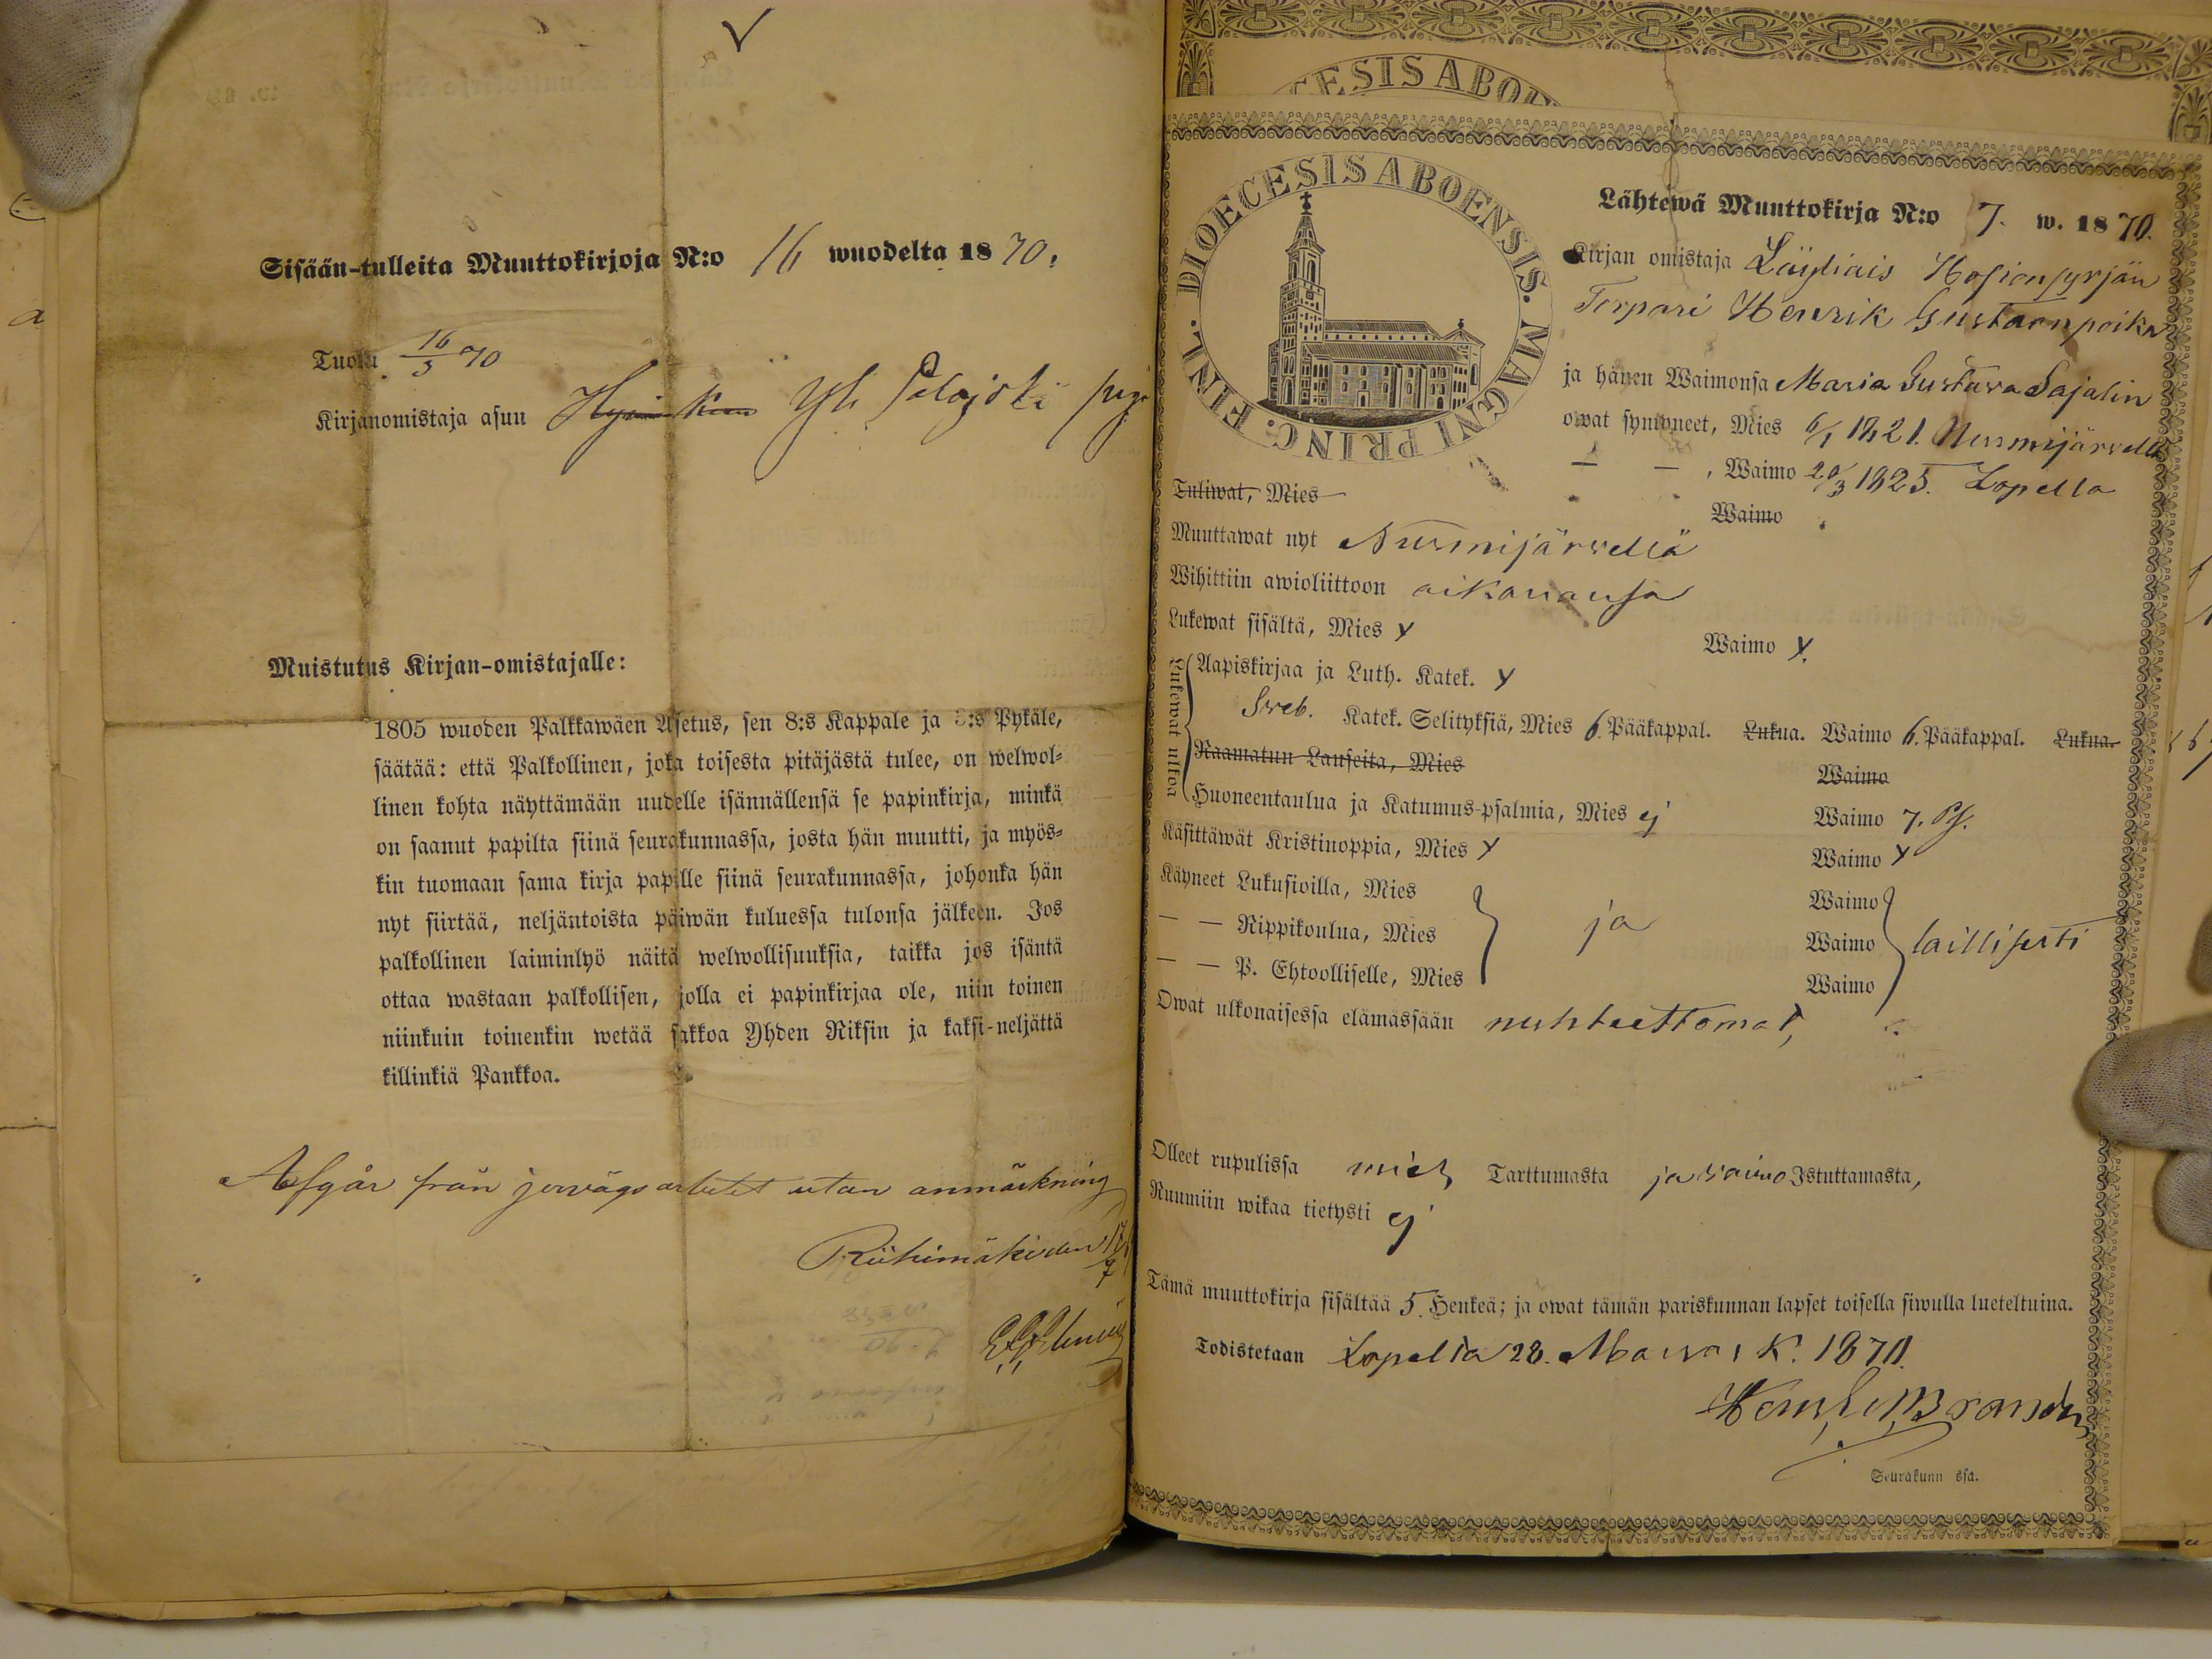 Sisään-tulleita Muuttokirjoja N:o 16 wuodelta 1870.
Tuotu 16/3 70
Kirjanomistaja asuu Yli
Muistutus Kirjan-omistajalle:
1805 wuoden Palkkawäen Asetus, sen 8:s Kappale ja 3:s Pykäle,
säätää: että Palkollinen, joka toisesta pitäjästä tulee, on welwol-
linen kohta näyttämään uudelle isännällensä se papinkirja, minkä
on saanut papilta siinä seurakunnassa, josta hän muutti, ja myös-
kin tuomaan sama kirja papille siinä seurakunnassa, johonka hän
nyt siirtää, neljäntoista päiwän kuluessa tulonsa jälkeen. Jos
palkollinen laiminlyö näitä welwollisuuksia, taikka jos isäntä
ottaa wastaan palkollisen, jolla ei papinkirjaa ole, niin toinen
niinkuin toinenkin wetää sakkoa Yhden Riksin ja kaksi-neljättä
killinkiä Pankkoa.
Afgår från jernvägsarbetet utan anmärkning
Riihimäki den
DIOECESIS ABO
FINL. DIOECESIS ABOENSIS. MAGNI PRINC.
Lähtewä Muuttokirja N:o 7. w. 1870.
Kirjan omistaja Läyliäis
Torpari Henrik Gustaanpoika
ja hänen Waimonsa Maria Gustava Sajalin
owat syntyneet, Mies 6/1 1821. Nurmijärvellä
— — , Waimo 20/3 1825. Lopella
Tuliwat, Mies Waimo
Muuttawat nyt Nurmijärvellä
Wihittiin awioliittoon aikanansa
Lukewat sisältä, Mies y Waimo y.
Lukewat ulkoa
Aapiskirjaa ja Luth. Katek. y
Sveb. Katek. Selityksiä, Mies 6. Pääkappal. Lukua. Waimo 6. Pääkappal. Lukua.
Raamatun Lauseita, Mies Waimo
Huoneentaulua ja Katumus-psalmia, Mies ej Waimo 7. Ps.
Käsittäwät Kristinoppia, Mies y Waimo y
Käyneet Lukusioilla, Mies Waimo
— — Rippikoulua, Mies ja Waimo laillisesti
— — P. Ehtoolliselle, Mies Waimo
Owat ulkonaisessa elämässään nuhteettomat,
Olleet rupulissa mies Tarttumasta ja vaimo Istuttamasta,
Ruumiin wikaa tietysti ej
Tämä muuttokirja sisältää 5. Henkeä; ja owat tämän pariskunnan lapset toisella siwulla lueteltuina.
Todistetaan Lopella 28. K. 1870.
Seurakunn ssa.